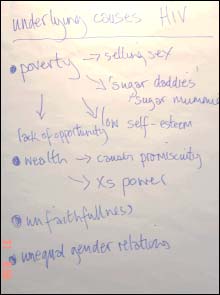 underlying causes HIV
poverty → selling sex
'sugar daddies'
'sugar mummie
lack of opportunity
low self-esteem
wealth → causes promiscuity
→ Xs power
unfaithfullness
unequal gender relations